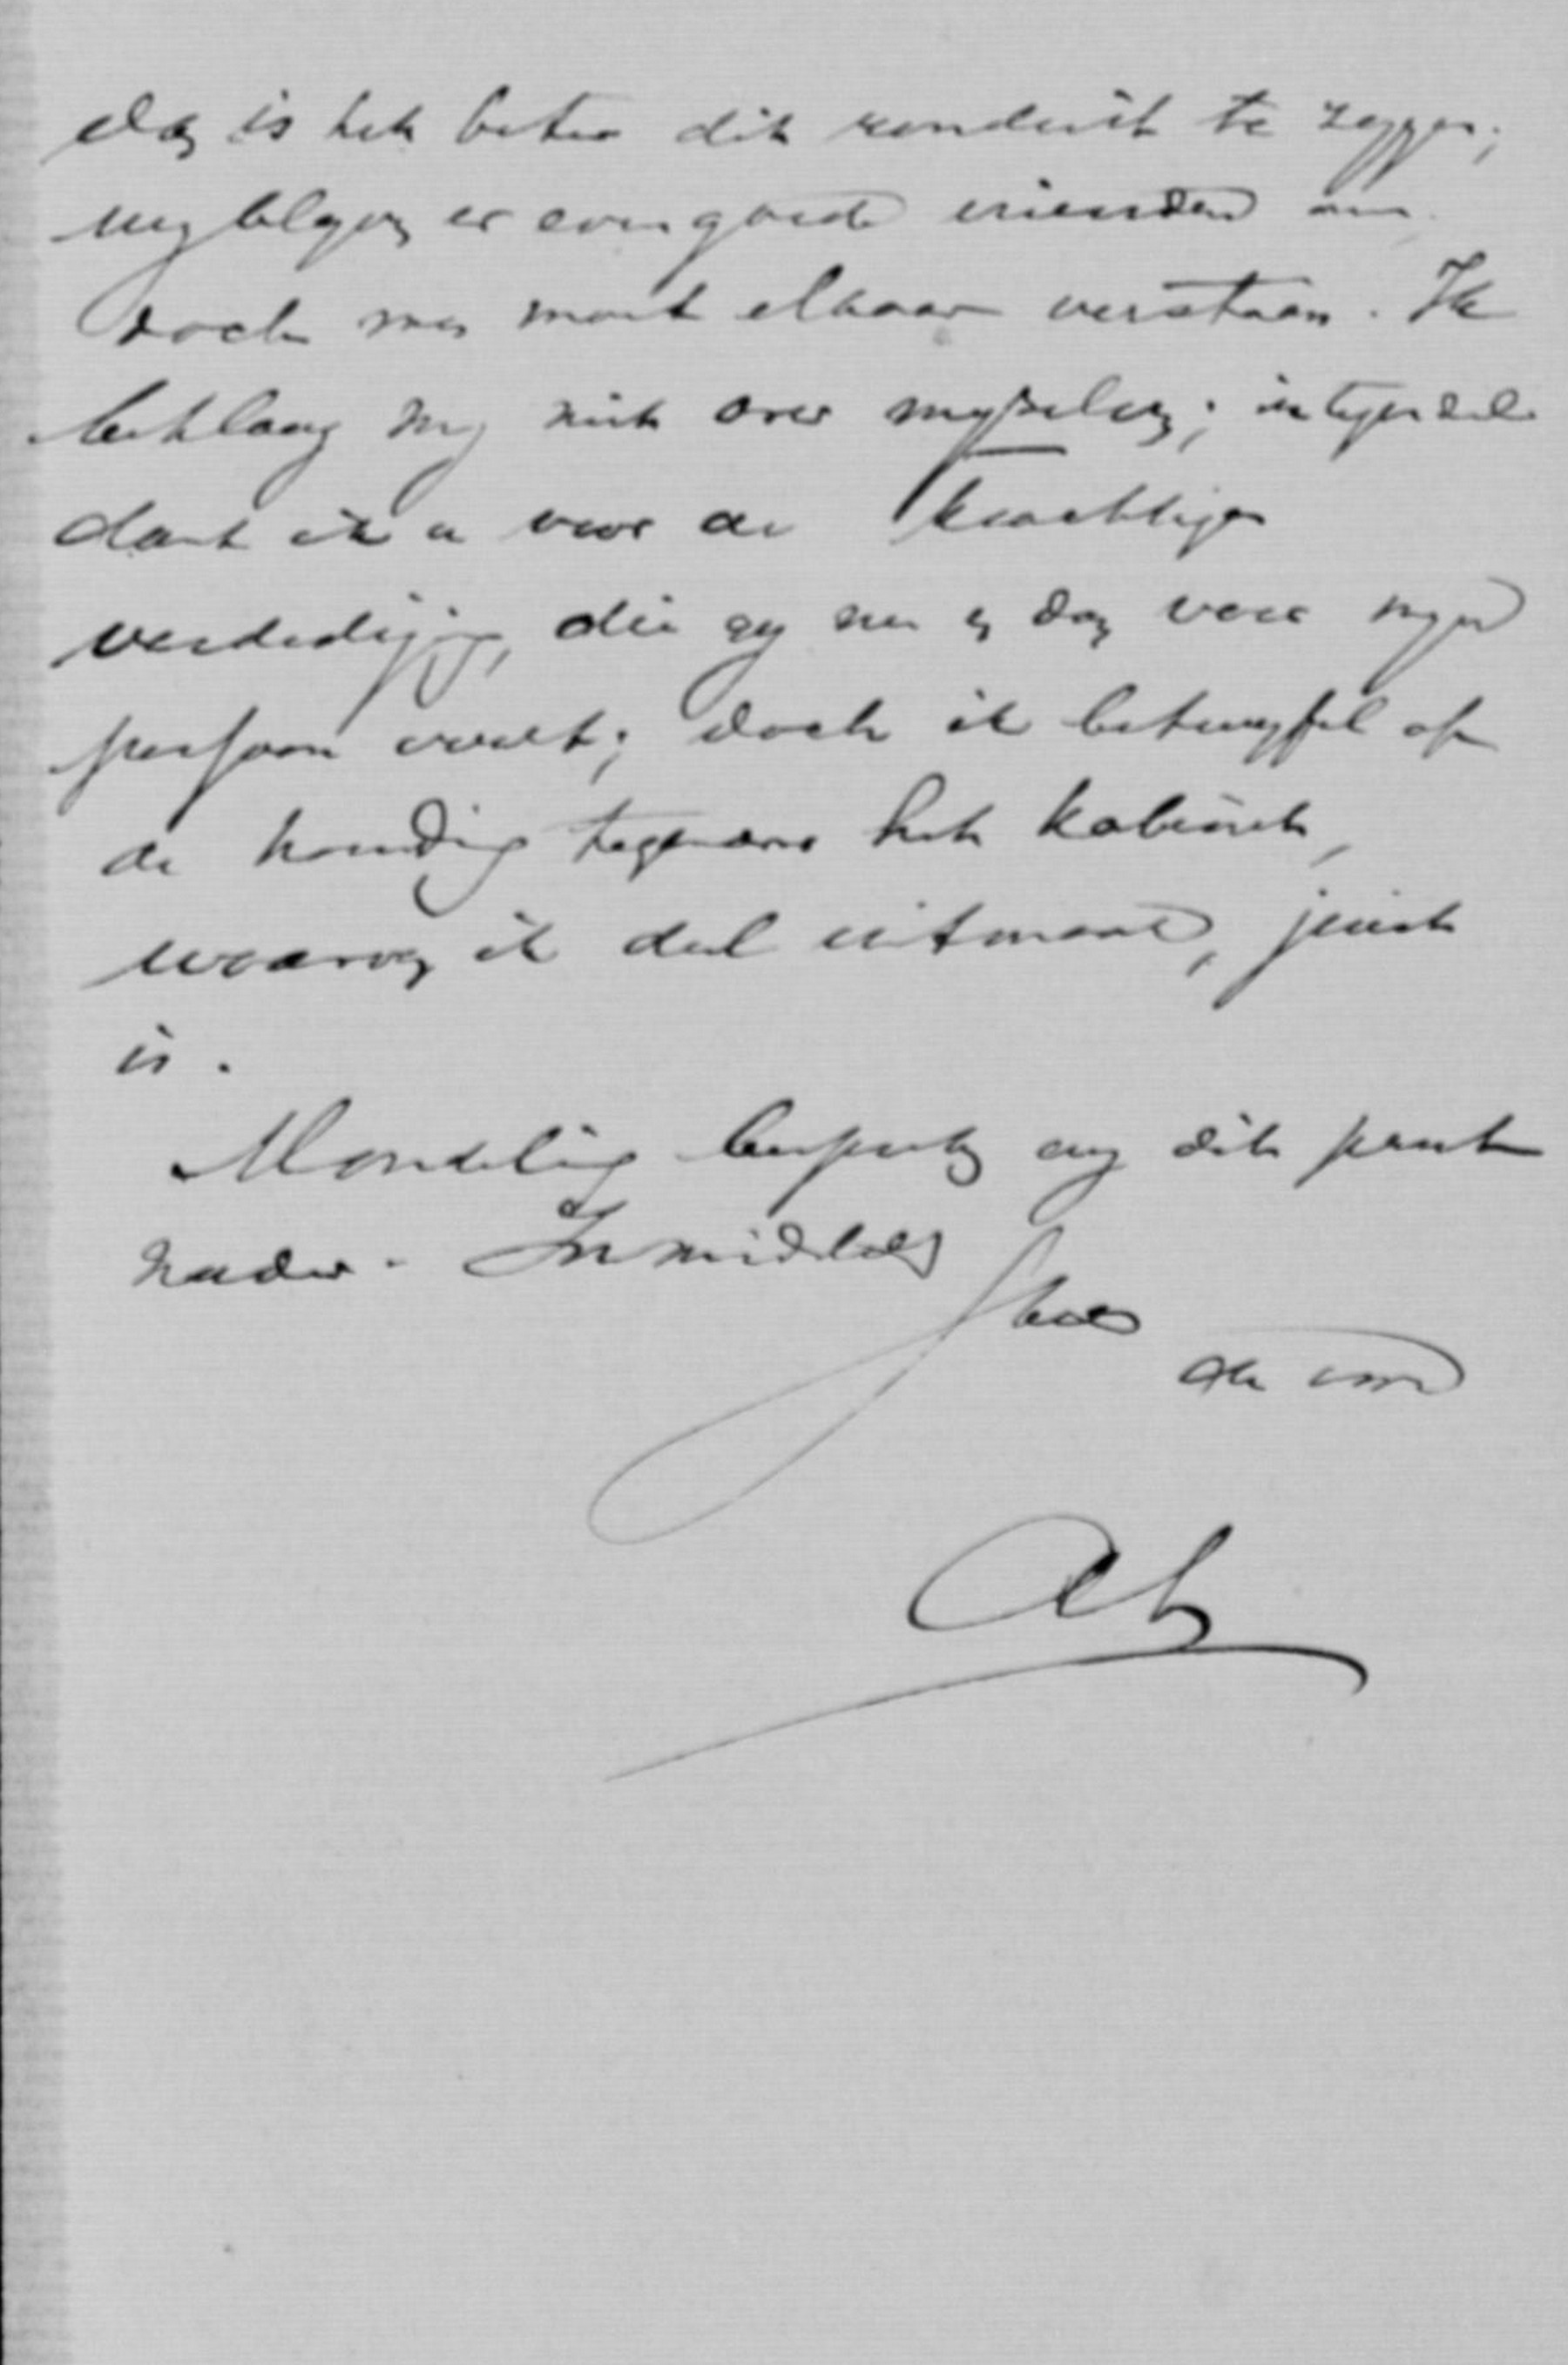 dan is het beter dit ronduit te zeggen;
wy blyven er even goede vrienden om
doch men moet elkaar verstaan. Ik
beklaag my niet over myzelven; integendeel
dank ik u voor de krachtige
verdediging, die gy nu en dan voor myn
persoon voert; doch ik betwyfel of
de houding tegenover het kabinet,
waarvan ik deel uitmaak, juist
is.
Mondeling bespreken wy dit punt
nader. Inmiddels